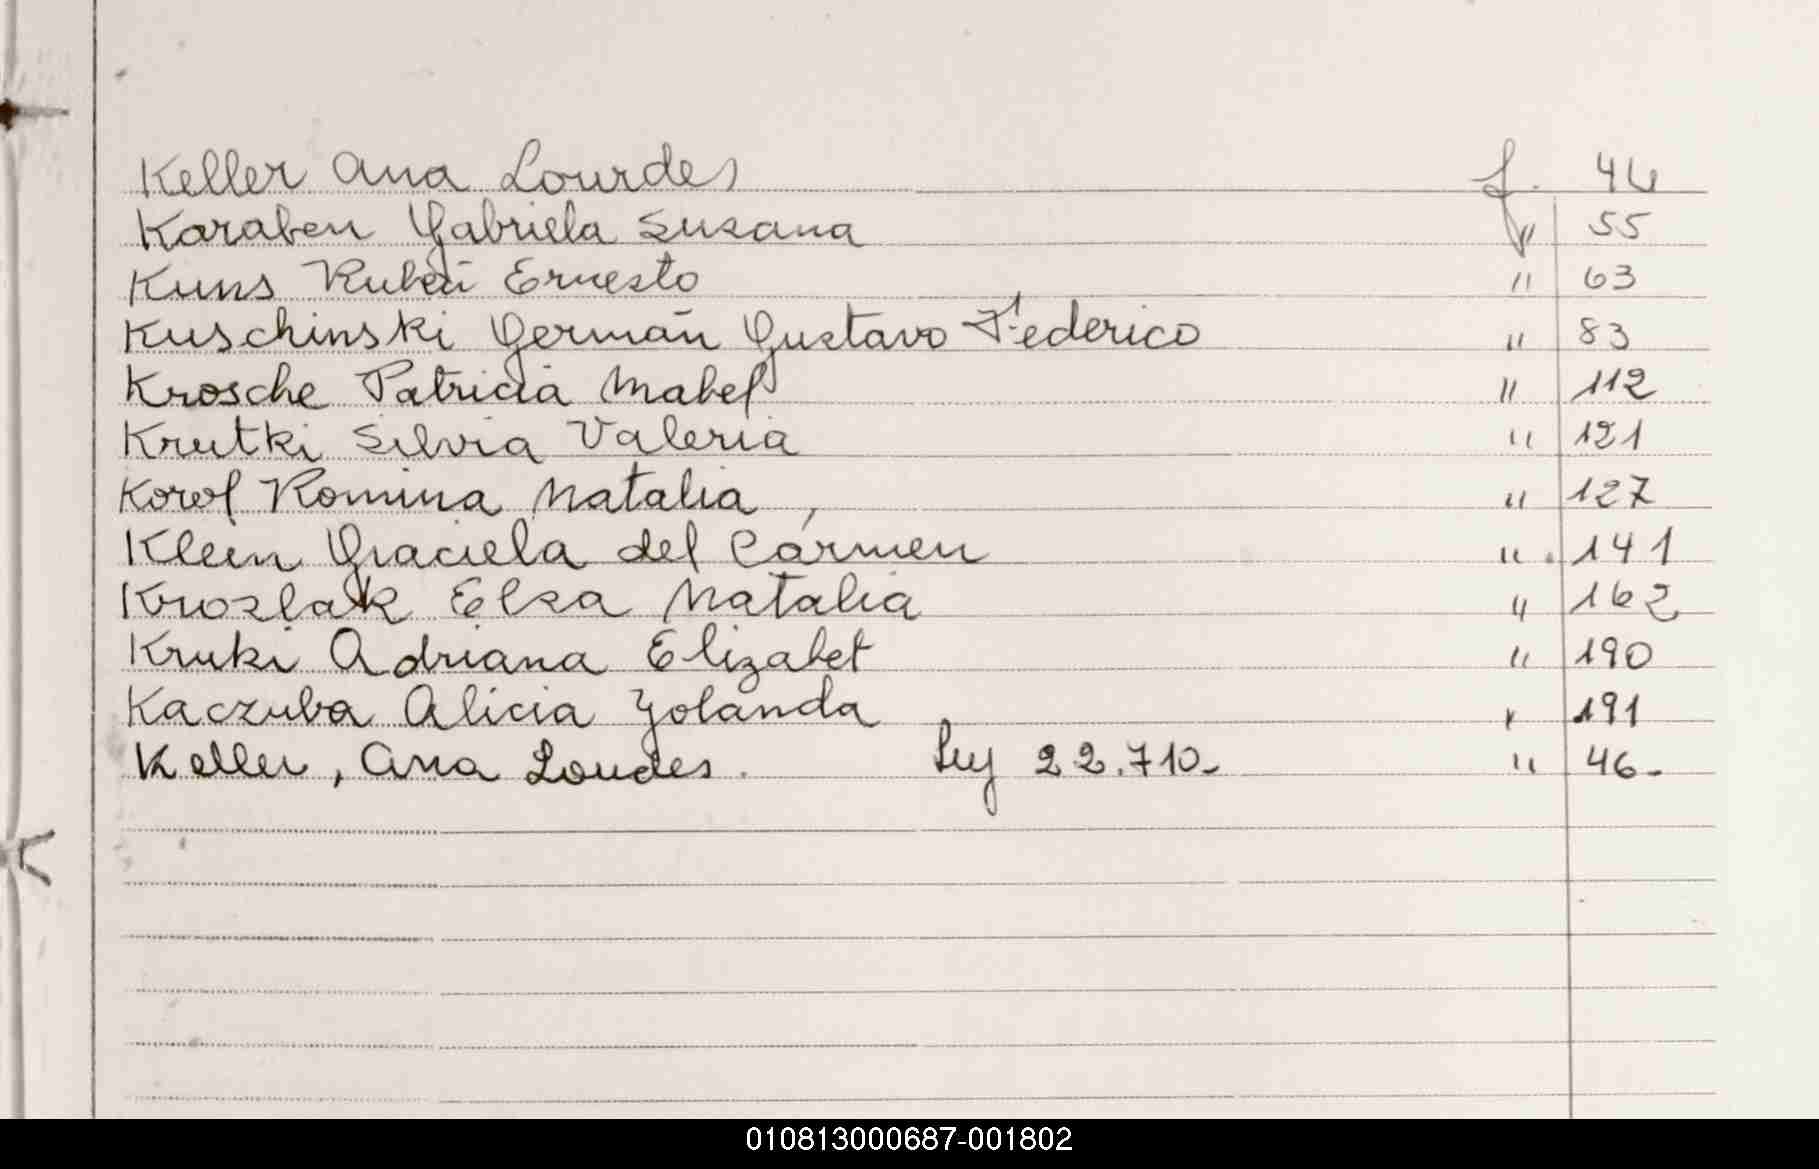 Keller Ana Lourdes f. 46
Karaben Gabriela Susana " 55
Kuns Rubén Ernesto " 63
Kuschinski Germán Gustavo Federico " 83
Krosche Patricia Mabel " 112
Krutki Silvia Valeria " 121
Korol Romina Natalia , " 127
Klein Graciela del Carmen " 141
Krozlak Elsa Natalia " 162
Kruki Adriana Elizabet " 190
Kaczuba Alicia Yolanda " 191
Keller, Ana Loudes. Ley 22.710- " 46-
K
010813000687-001802